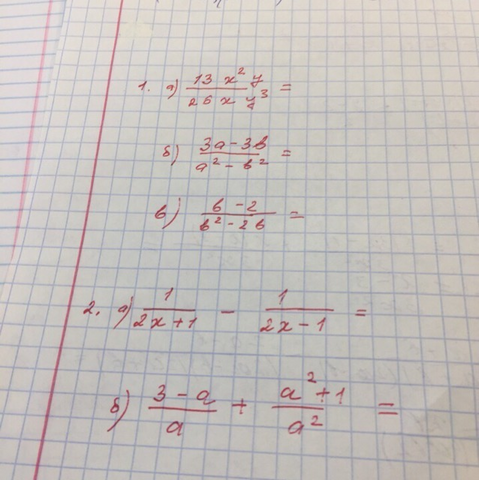 1. а) 13 x² y / 26 x y³ =
б) 3a - 3b / a² - b² =
в) b - 2 / b² - 2b =
2. а) 1 / 2x + 1 - 1 / 2x - 1 =
б) 3 - a / a + a² + 1 / a² =